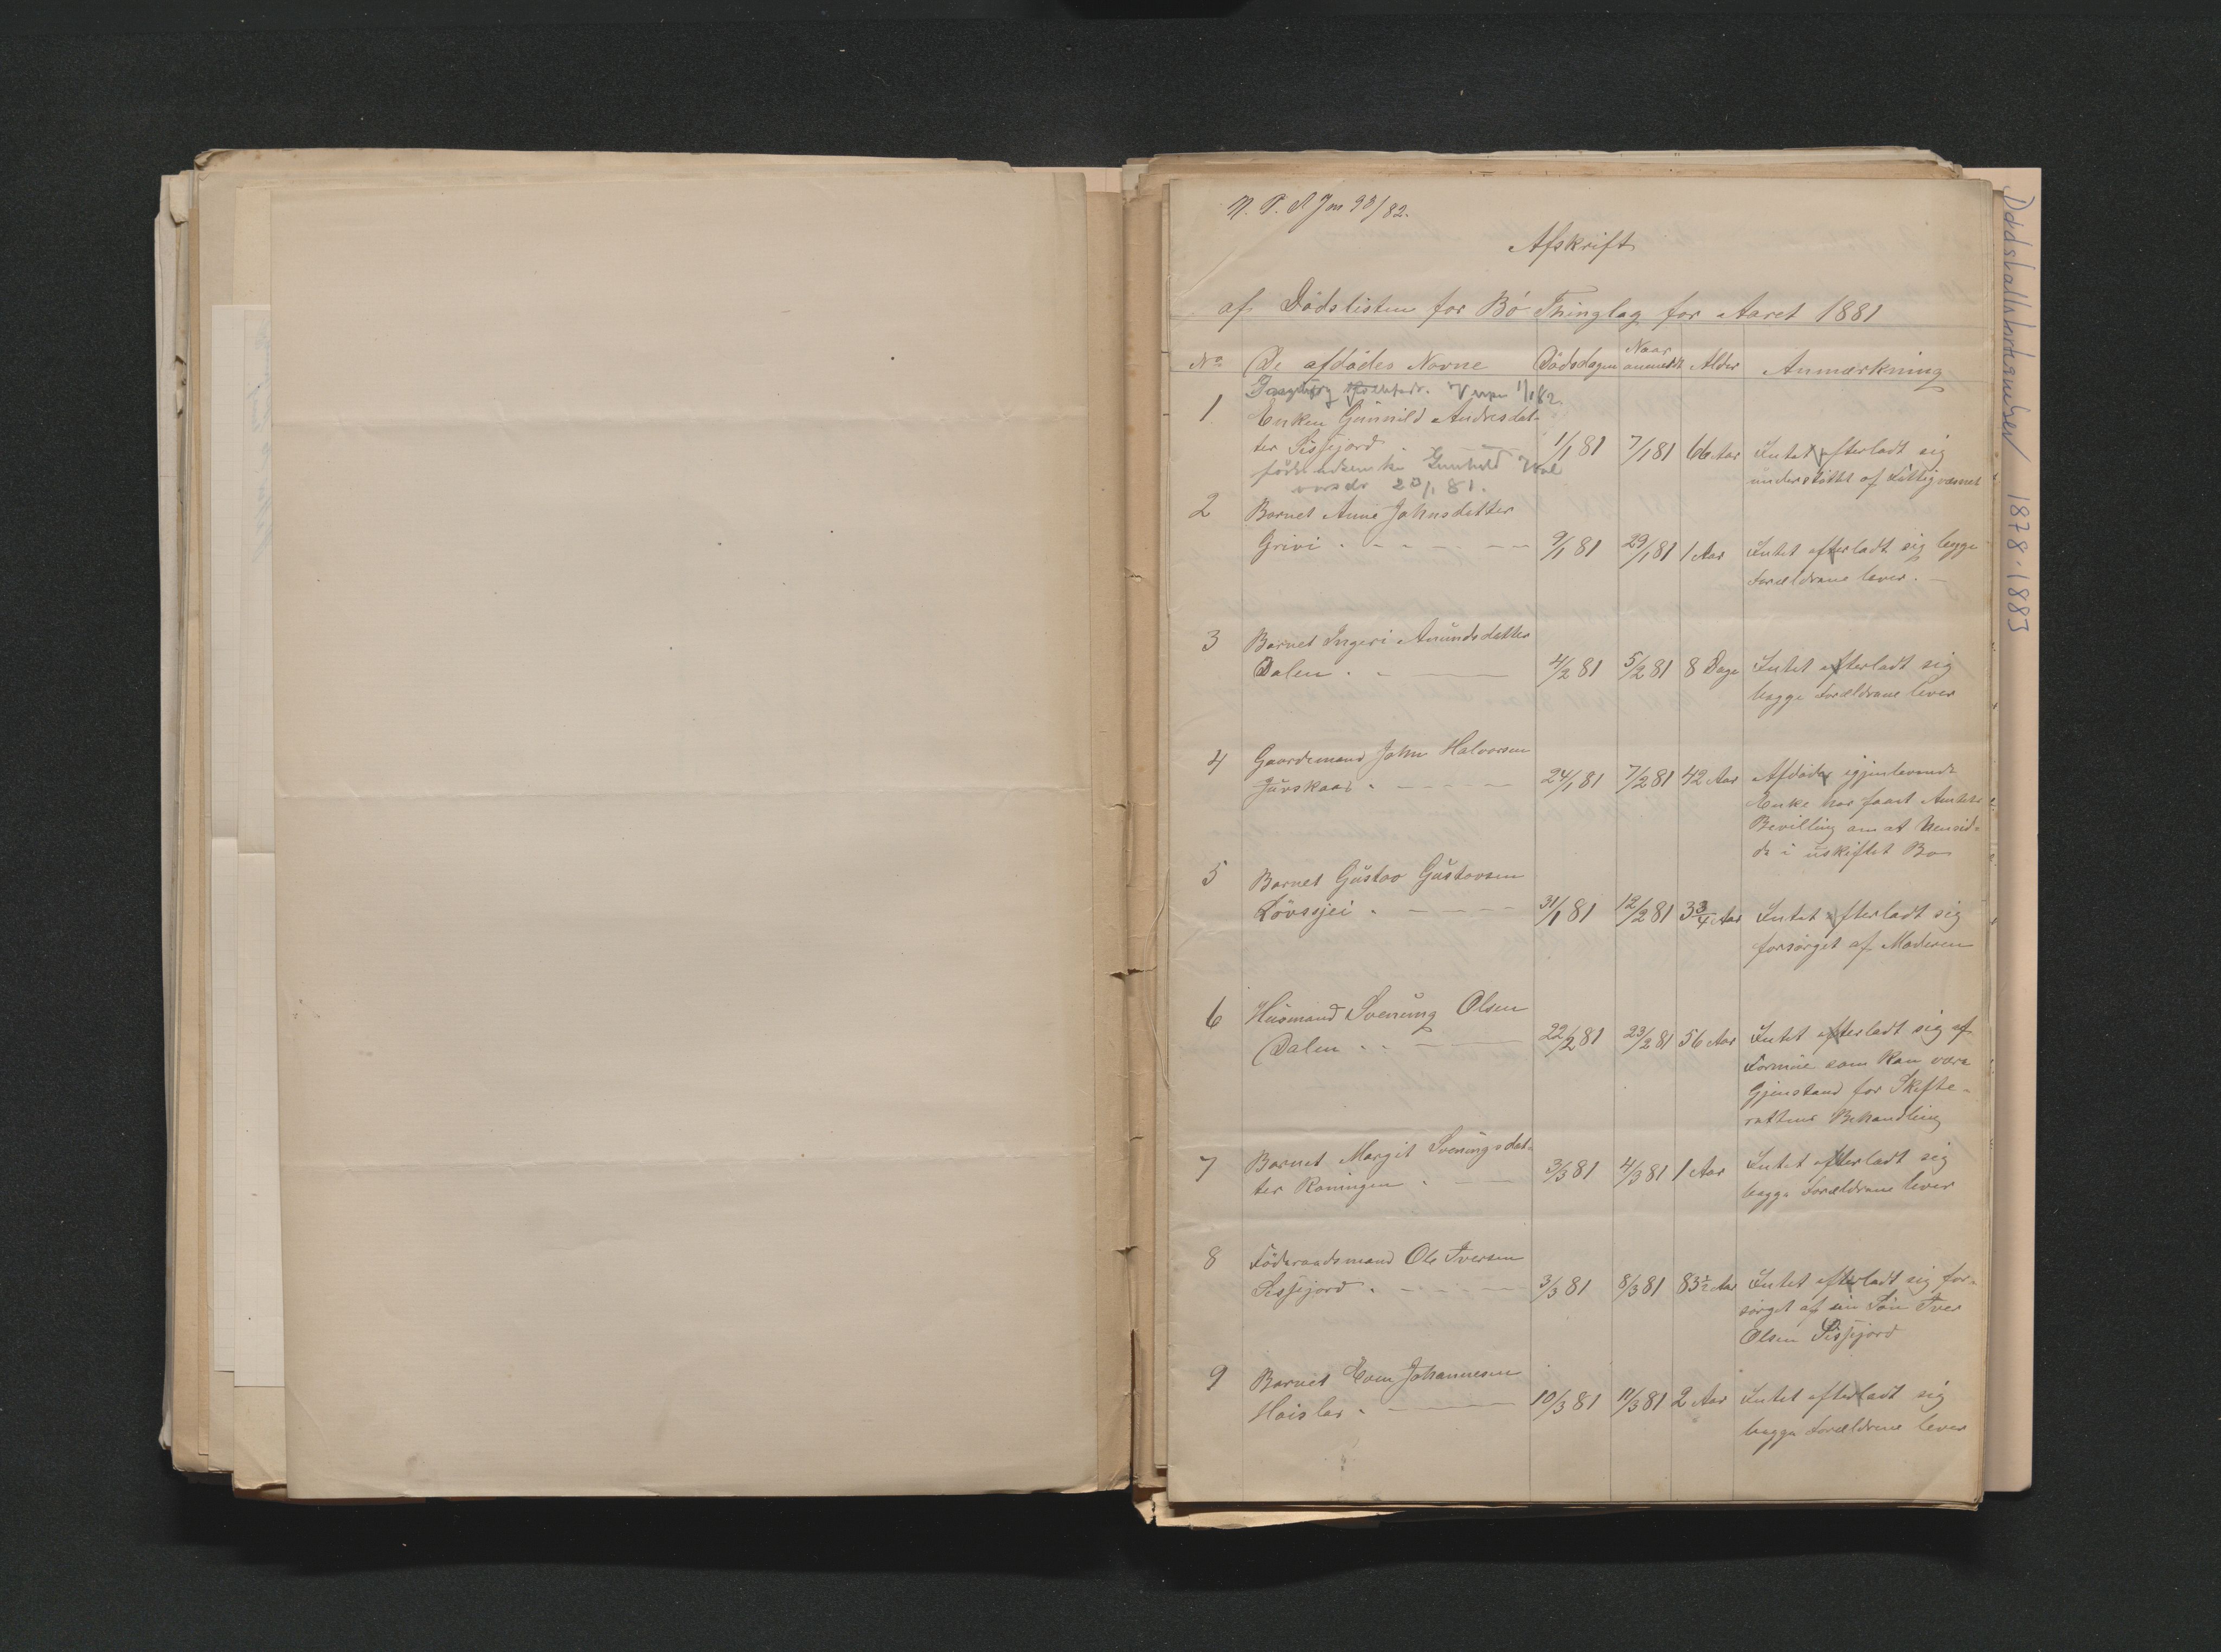 N. P. A Jm 93/82.
Afskrift
af Dödslisten for Bö Thinglag for Aaret 1881
No De afdödes Navne Dödsdagen Naar anmeldt Alder Anmærkning
1/1 82.
1 Enken Gunnild Andresdat-
ter Sisjord 1/1 81 7/1 81 66 Aar Intet efterladt sig
understöttet af Fattigvæsnet
Gunhild
23/1 81.
2 Barnet Anne Johnsdatter
Grivi 9/1 81 29/1 81 1 Aar Intet efterladt sig begge
Forældrene lever.
3 Barnet Ingeri Amundsdatter
Dalen 4/2 81 5/2 81 8 Dage Intet efterladt sig
begge Forældrene lever
4 Gaardemand John Halvorsen
Jurskaas 24/1 81 7/2 81 42 Aar Afdödes igjenlevende
Enke har faaet Amtets
Bevilling om at hensid-
de i uskiftet Bo
5 Barnet Gustav Gustavsen
Lövssjei 31/1 81 12/2 81 3 3/4 Aar Intet efterladt sig
forsörget af Moderen
6 Husmand Svenung Olsen
Dalen 22/2 81 23/2 81 56 Aar Intet efterladt sig af
Formue som kan være
Gjenstand for Skifte-
rettens Behandling
7 Barnet Margit Svenungsdat-
ter Roningen 3/3 81 4/3 81 1 Aar Intet efterladt sig
begge Forældrene lever
8 Föderaadsmand Ole Iversen
Sisjord 3/3 81 8/3 81 83 1/2 Aar Intet efterladt sig for-
sörget af sin Sön Iver
Olsen Sisjord
9 Barnet Even Johannesen
Haislas 10/3 81 11/3 81 2 Aar Intet efterladt sig
begge Forældrene lever
Dødsfallsforhandler 1878-1883